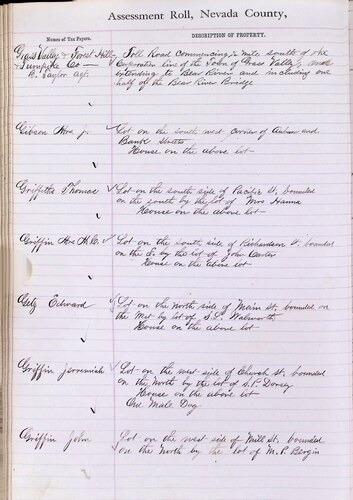 Assessment Roll, Nevada County,
Names of Tax Payers.
DESCRIPTION OF PROPERTY.
Grass Valley & Forest Hill Toll Road Commencing ½ mile south of the
Turnpike Co — Corporation line of the Town of Grass Valley, and
B. Taylor Agt. extending to Bear River and including one
half of the Bear River Bridge
Gibson Mrs J. Lot on the south west corner of Auburn and
Bank Streets
House on the above lot
Griffiths Thomas Lot on the south side of Pacific St, bounded
on the south by the lot of Mrs Hanna
House on the above lot
Griffin Mrs M.C. Lot on the south side of Richardson St. bounded
on the S. by the lot of John Carter
House on the above lot
Getz Edward Lot on the North side of Main St, bounded on
the West by lot of S.L. Walworth
House on the above lot
Griffin Jeremiah Lot on the west side of Church St, bounded
on the North by the lot of S.P. Dorsey
House on the above lot
One Male Dog
Griffin John Lot on the west side of Mill St, bounded
on the North by the lot of M. P. Bergin